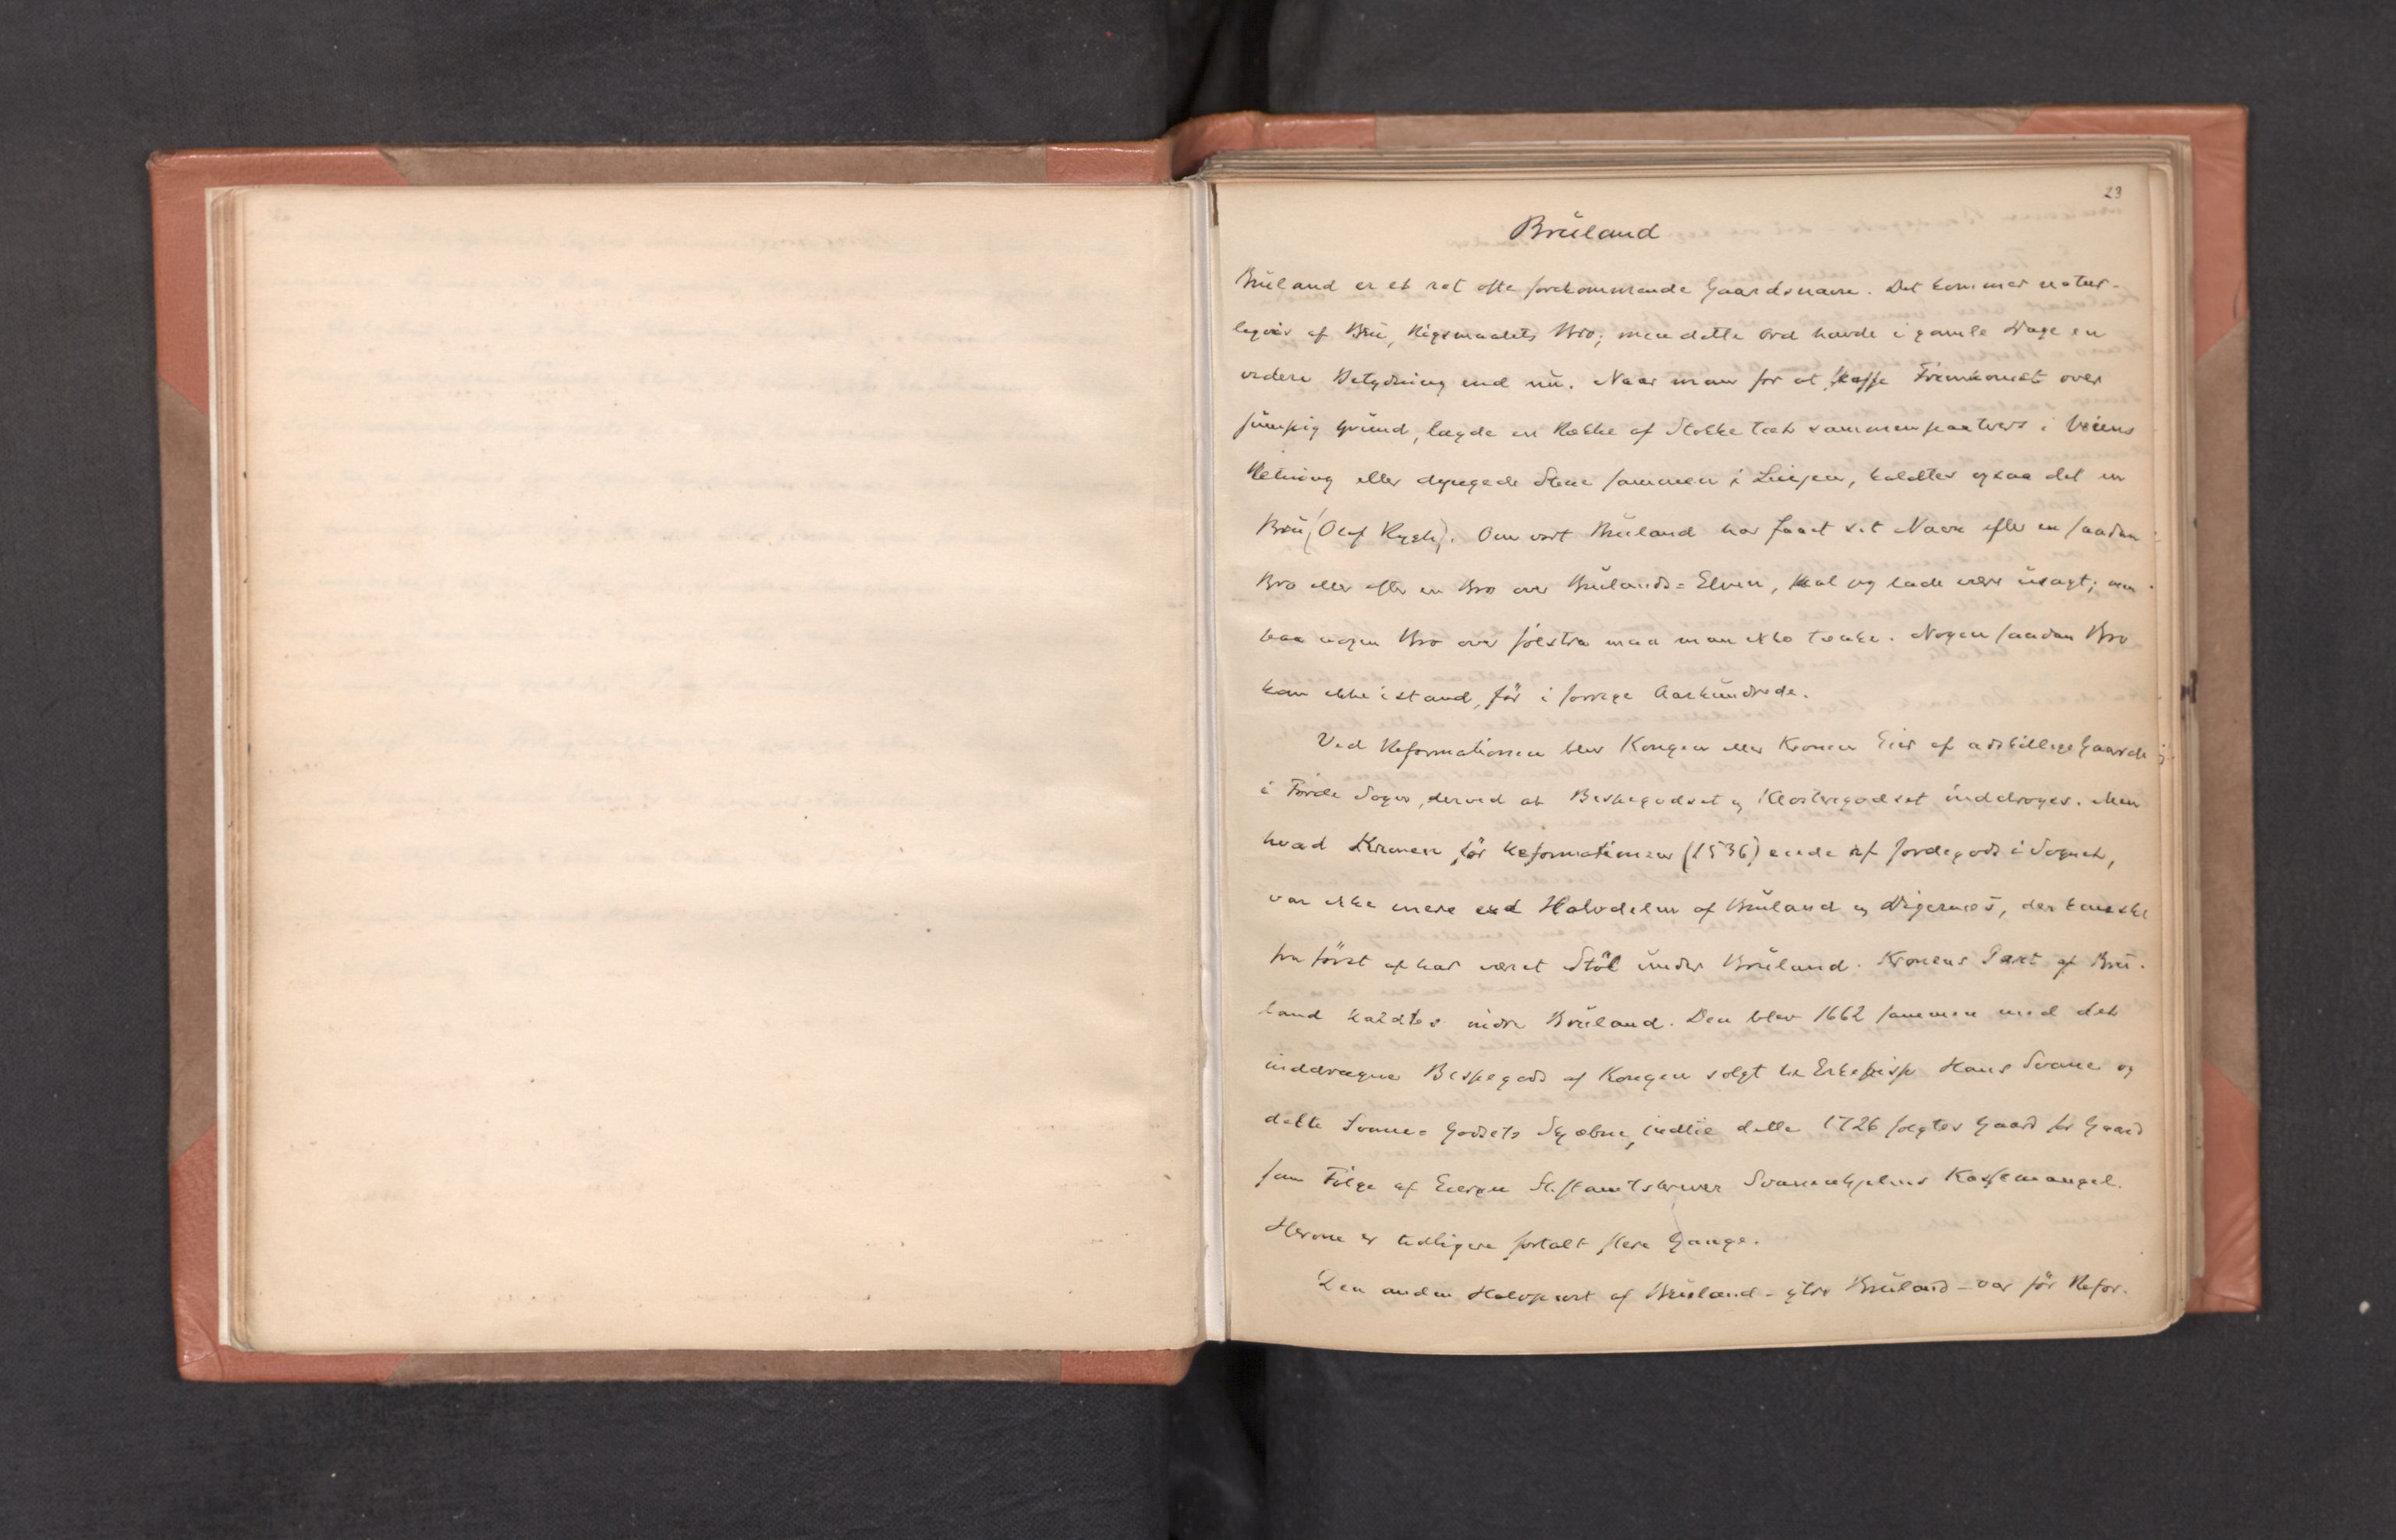 23
Bruland
Bruland er et ret ofte forekommende Gaardsnavn. Det kommer natur-
ligvis af Bru, Rigsmaalets Bro; men dette Ord havde i gamle Dage en
videre Betydning end nu. Naar man for at skaffe Fremkomst over
sumpig Grund, lagde en Række af Stokke tæt sammen paa tvers i Veiens
Retning eller dyngede Stene sammen i Linjen, kaldtes ogsaa det en
Bru (Oluf Rygh). Om vort Bruland har faaet sit Navn efter en saadan
Bro eller efter en Bro over Brulands-Elven, skal jeg lade være usagt; men
paa nogen Bro over Jølstra maa man ikke tænke. Nogen saadan Bro
kom ikke istand, før i forrige Aarhundrede.
Ved Reformationen blev Kongen eller Kronen Eier af adskillige Gaarde
i Førde Sogn, derved at Bispegodset og Klostergodset inddroges. Men
hvad Kronen før Reformationen (1536) eiede af Jordegods i Sognet,
var ikke mere end Halvdelen af Bruland og Digernes, der kanske
fra først af har været Støl under Bruland. Kronens Part af Bru-
land kaldtes indre Bruland. Den blev 1662 sammen med det
inddragne Bispegods af Kongen solgt til Erkebisp Hans Svane og
delte Svane-Godsets Skjæbne, indtil dette 1726 solgtes Gaard for Gaard
som Følge af Eieren Stiftamtskriver Svanenhjelms Kassemangel.
Herom er tidligere fortalt flere Gange.
Den anden Halvpart af Bruland - ytre Bruland - var før Refor-